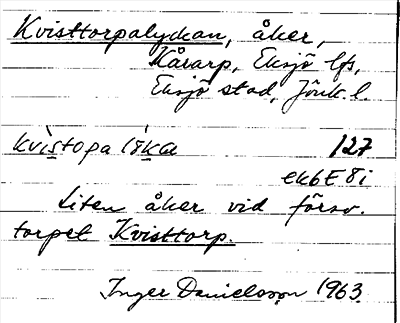 Kvisttorpalyckan, åker,
Kårarp, Eksjö lfs,
Eksjö stad, Jönk. l.
kvìstopa lỳka 127
ek6E8i
Liten åker vid försv.
torpet Kvisttorp.
Inger Danielsson 1963.